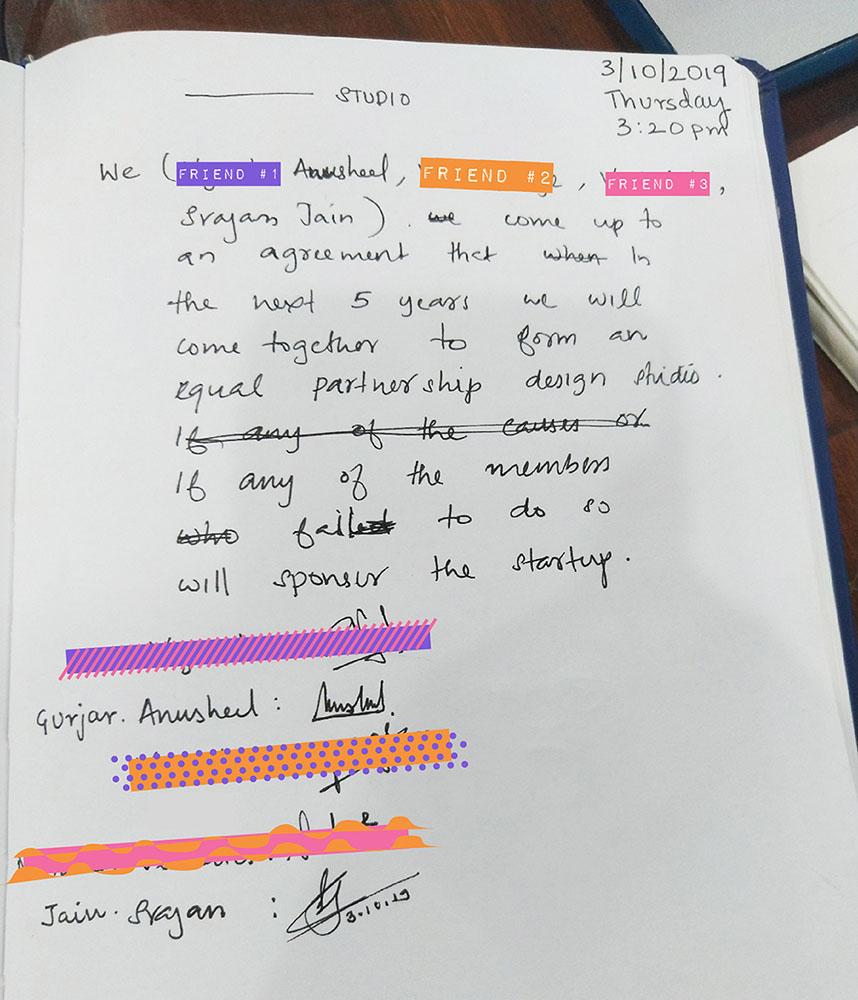 STUDIO
3/10/2019
Thursday
3:20pm
We (FRIEND #1 Anusheel, FRIEND #2, FRIEND #3,
Srajan Jain). we come up to
an agreement that when In
the next 5 years we will
come together to form an
equal partnership design studio.
If any of the causes or
If any of the members
who fail to do so
will sponsor the startup.
Gurjar. Anusheel :
Jain. Srajan : 3.10.19